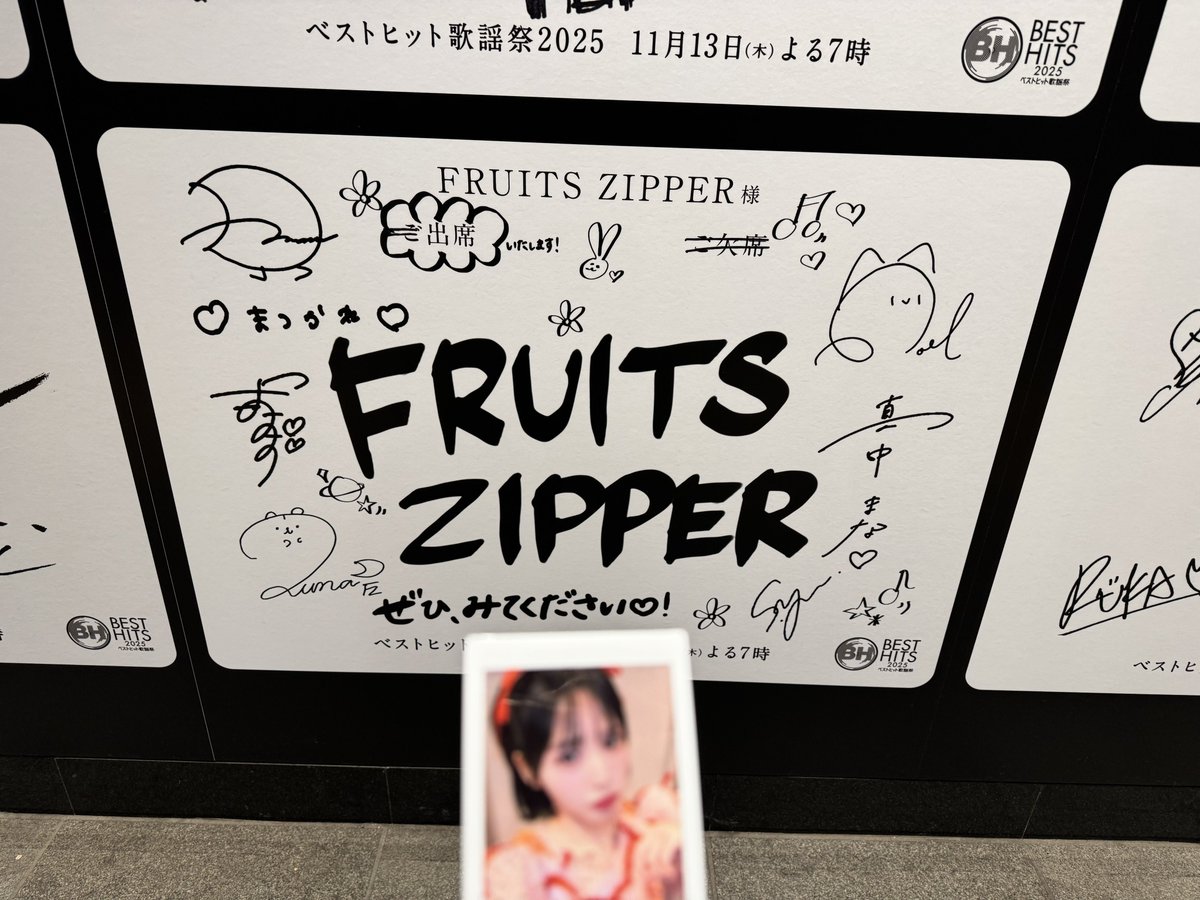 ベストヒット歌謡祭2025 11月13日(木)よる7時
BH BEST HITS 2025
ベストヒット歌謡祭
FRUITS ZIPPER様
ご出席いたします!
ご欠席
まつかれ
noel
FRUITS
ZIPPER
真中まな
Luna
ぜひ、みてください♡!
ベストヒット
(木)よる7時
BH BEST HITS 2025
ベストヒット歌謡祭
BH BEST HITS 2025
ベストヒット歌謡祭
RUKA
ベストヒッ